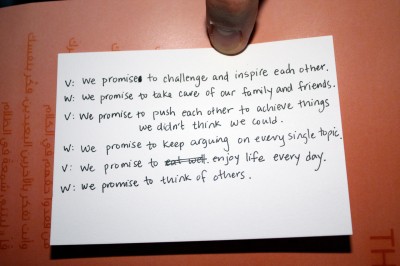 V: We promise to challenge and inspire each other.
W: We promise to take care of our family and friends.
V: We promise to push each other to achieve things
we didn't think we could.
W: We promise to keep arguing on every single topic.
V: We promise to eat well enjoy life every day.
W: We promise to think of others.
TH